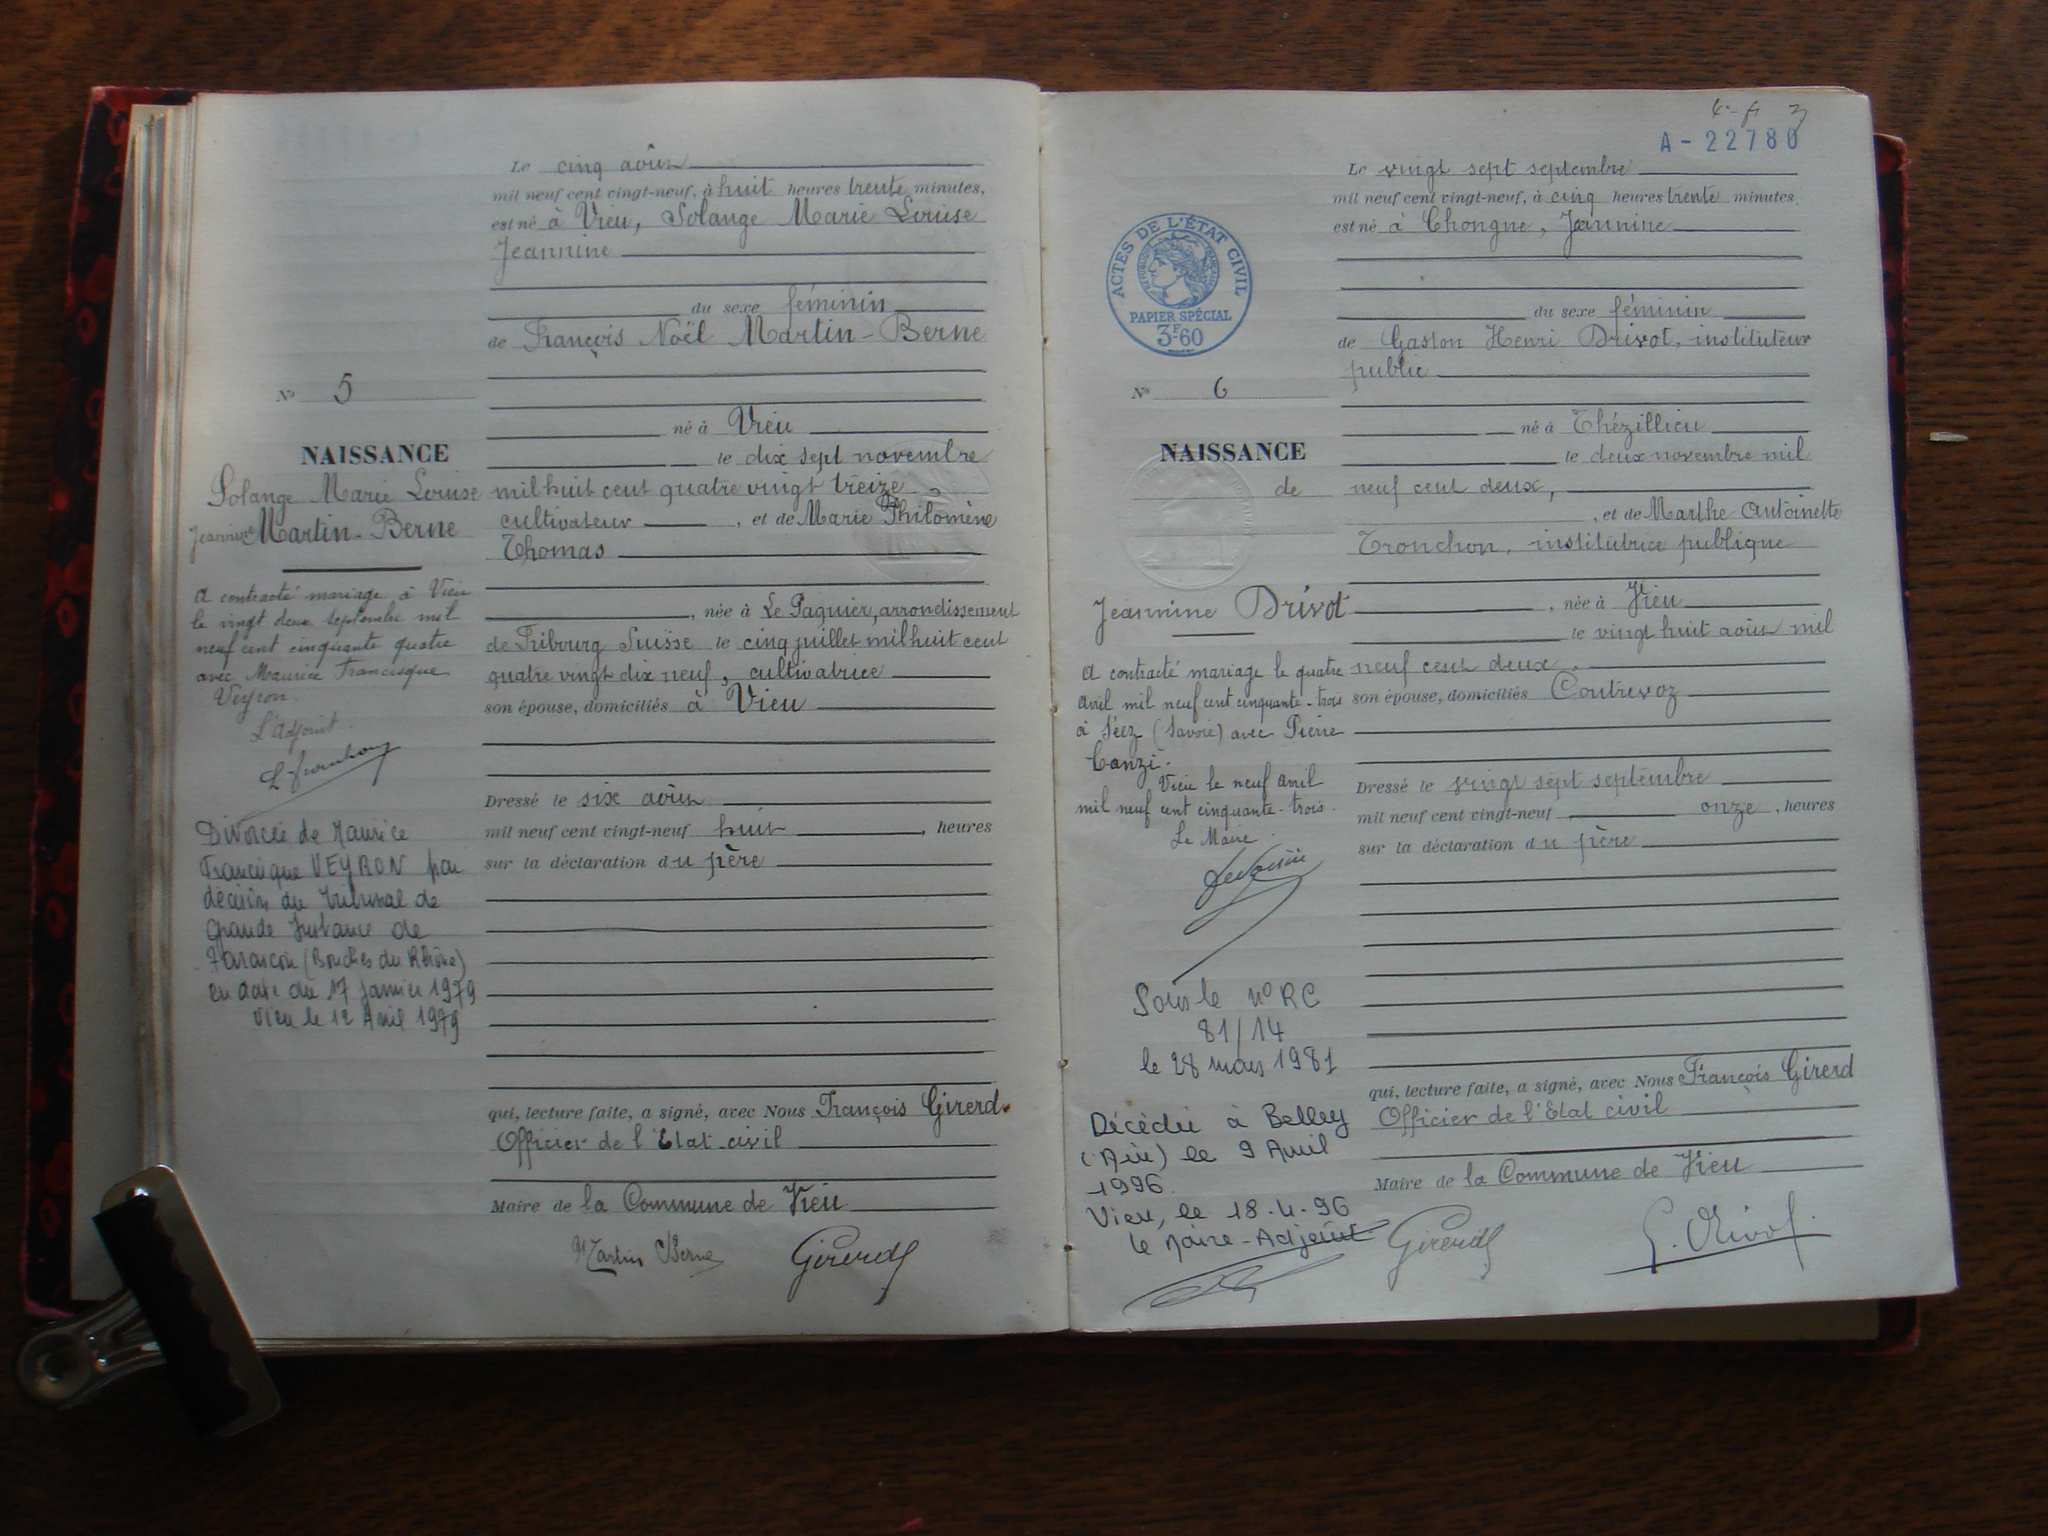 Le cinq août
mil neuf cent vingt-neuf, à huit heures trente minutes,
est né à Vieu, Solange Marie Louise
Jeannine
du sexe féminin
de François Noël Martin-Berne
né à Vieu
le dix sept novembre
mil huit cent quatre vingt treize
cultivateur, et de Marie Philomène
Thomas
, née à Le Paquier, arrondissement
de Fribourg Suisse le cinq juillet mil huit cent
quatre vingt dix neuf, cultivatrice
son épouse, domiciliés à Vieu
Dressé le six août
mil neuf cent vingt-neuf huit, heures
sur la déclaration du père
qui, lecture faite, a signé, avec Nous François Girerd
Officier de l'Etat civil
Maire de la Commune de Vieu
Martin Berne Girerd
No 5
NAISSANCE
Solange Marie Louise
Jeannine Martin-Berne
A contracté mariage à Vieu
le vingt deux septembre mil
neuf cent cinquante quatre
avec Maurice Francisque
Veyron.
L'Adjoint
Divorcée de Maurice
Francisque VEYRON par
décision du Tribunal de
Grande Instance de
Tarascon (Bouches du Rhône)
en date du 17 Janvier 1979
Vieu le 12 Avril 1979
A-22780
Le vingt sept septembre
mil neuf cent vingt-neuf, à cinq heures trente minutes,
est né à Chongne, Jeannine
du sexe féminin
de Gaston Henri Drivot, instituteur
public
né à Thézillieu
le deux novembre mil
neuf cent deux,
, et de Marthe Antoinette
Tronchon, institutrice publique
, née à Vieu
le vingt huit août mil
neuf cent deux,
son épouse, domiciliés Contrevoz
Dressé le vingt sept septembre
mil neuf cent vingt-neuf, onze, heures
sur la déclaration du père
qui, lecture faite, a signé, avec Nous François Girerd
Officier de l'Etat civil
Maire de la Commune de Vieu
Girerd G. Drivot
ACTES DE L'ÉTAT CIVIL
RÉPUBLIQUE FRANÇAISE
PAPIER SPÉCIAL
3F60
No 6
NAISSANCE
de
Jeannine Drivot
A contracté mariage le quatre
avril mil neuf cent cinquante-trois
à Séez (Savoie) avec Pierre
Canzi.
Vieu le neuf avril
mil neuf cent cinquante-trois.
Le Maire
Sous le n° RC
81/14
le 28 mars 1981
Décédée à Belley
(Ain) le 9 Avril
1996.
Vieu, le 18.4.96
le Maire-Adjoint